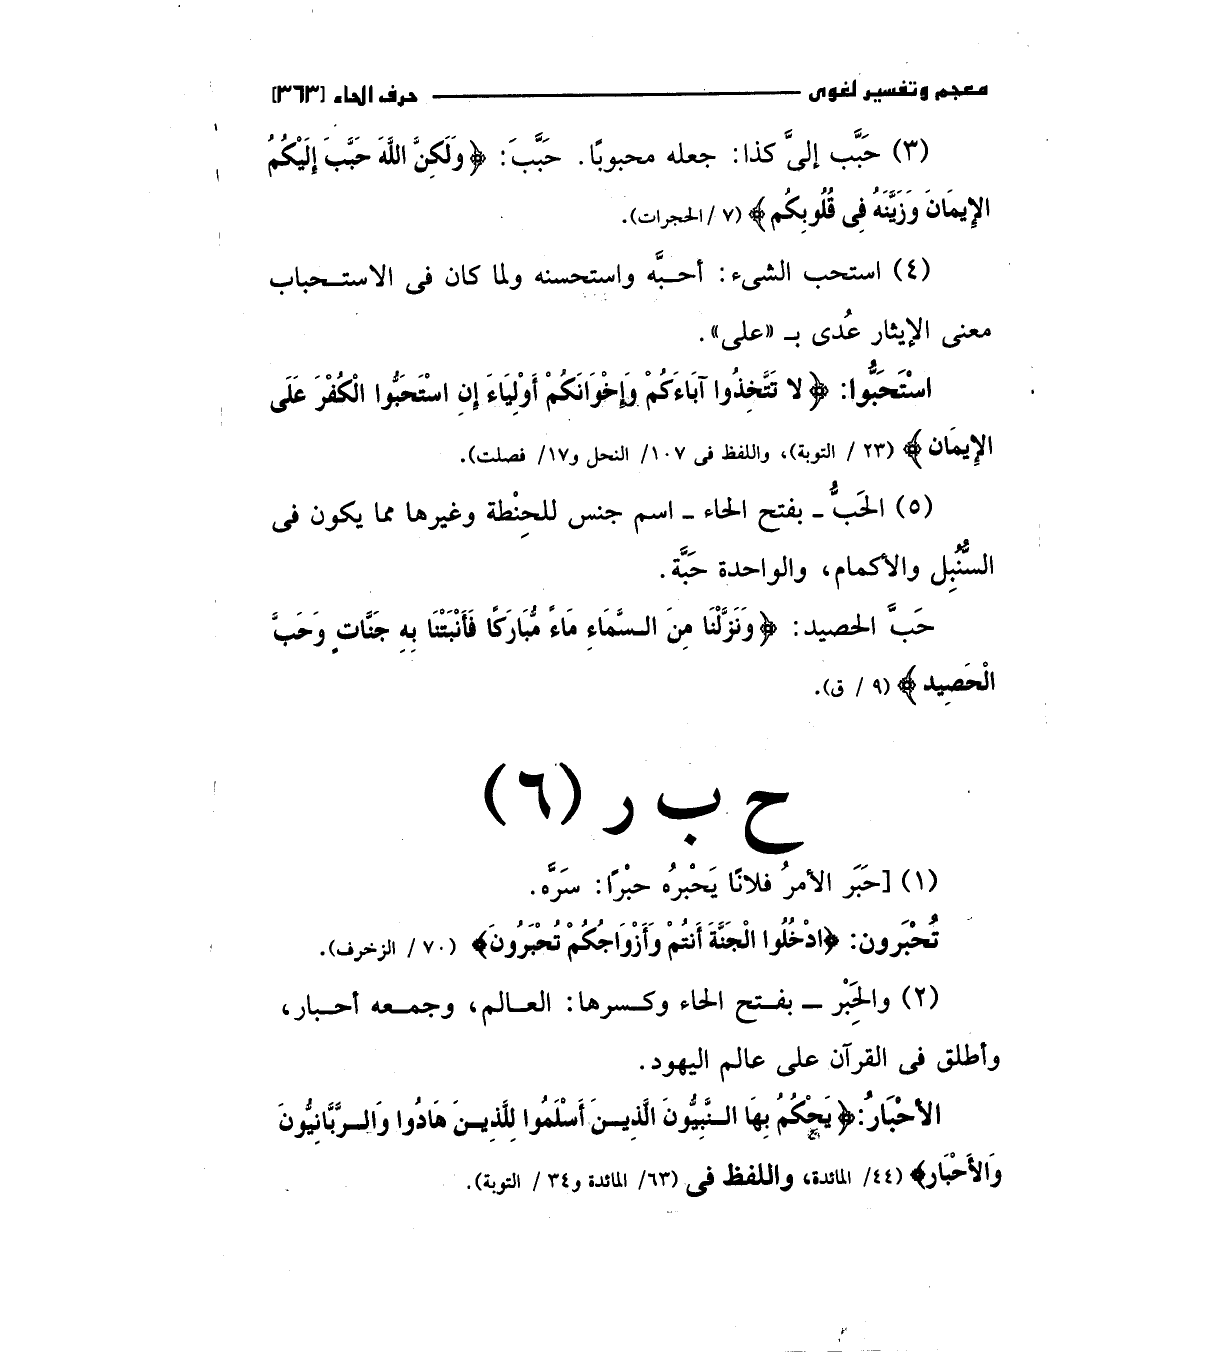 معجم وتفسير لغوى ـــــــــ حرف الحاء [٣٦٣]
(٣) حَبَّب إلىَّ كذا: جعله محبوبًا. حَبَّبَ: ﴿وَلَكِنَّ اللَّهَ حَبَّبَ إِلَيْكُمُ
الإِيمَانَ وَزَيَّنَهُ فِى قُلُوبِكُم﴾ (٧ /الحجرات).
(٤) استحب الشىء: أحبَّه واستحسنه ولما كان فى الاستحباب
معنى الإيثار عُدى بـ «على».
اسْتَحَبُّوا: ﴿لا تَتَّخِذُوا آبَاءَكُمْ وَإِخْوَانَكُمْ أَوْلِيَاءَ إِنِ اسْتَحَبُّوا الْكُفْرَ عَلَى
الإِيمَان﴾ (٢٣ / التوبة)، واللفظ فى ١٠٧/ النحل و١٧/ فصلت).
(٥) الحَبُّ ـ بفتح الحاء ـ اسم جنس للحِنْطة وغيرها مما يكون فى
السُّنْبِل والأكمام، والواحدة حَبَّة.
حَبَّ الحصيد: ﴿وَنَزَّلْنَا مِنَ السَّمَاءِ مَاءً مُّبَارَكًا فَأَنْبَتْنَا بِهِ جَنَّاتٍ وَحَبَّ
الْحَصِيد﴾ (٩ / ق).
ح ب ر (٦)
(١) [حَبَر الأمرُ فلانًا يَحْبرُه حبْرًا: سَرَّه.
تُحْبَرون: ﴿ادْخُلُوا الْجَنَّةَ أَنتُمْ وَأَزْوَاجُكُمْ تُحْبَرُونَ﴾ (٧٠ / الزخرف).
(٢) والحَِبْر ـ بفتح الحاء وكسرها: العالم، وجمعه أحبار،
وأطلق فى القرآن على عالم اليهود.
الأحْبَارُ: ﴿يَحْكُمُ بِهَا النَّبِيُّونَ الَّذِينَ أَسْلَمُوا لِلَّذِينَ هَادُوا وَالرَّبَّانِيُّونَ
وَالأَحْبَار﴾ (٤٤/ المائدة، واللفظ فى (٦٣/ المائدة و٣٤ / التوبة).